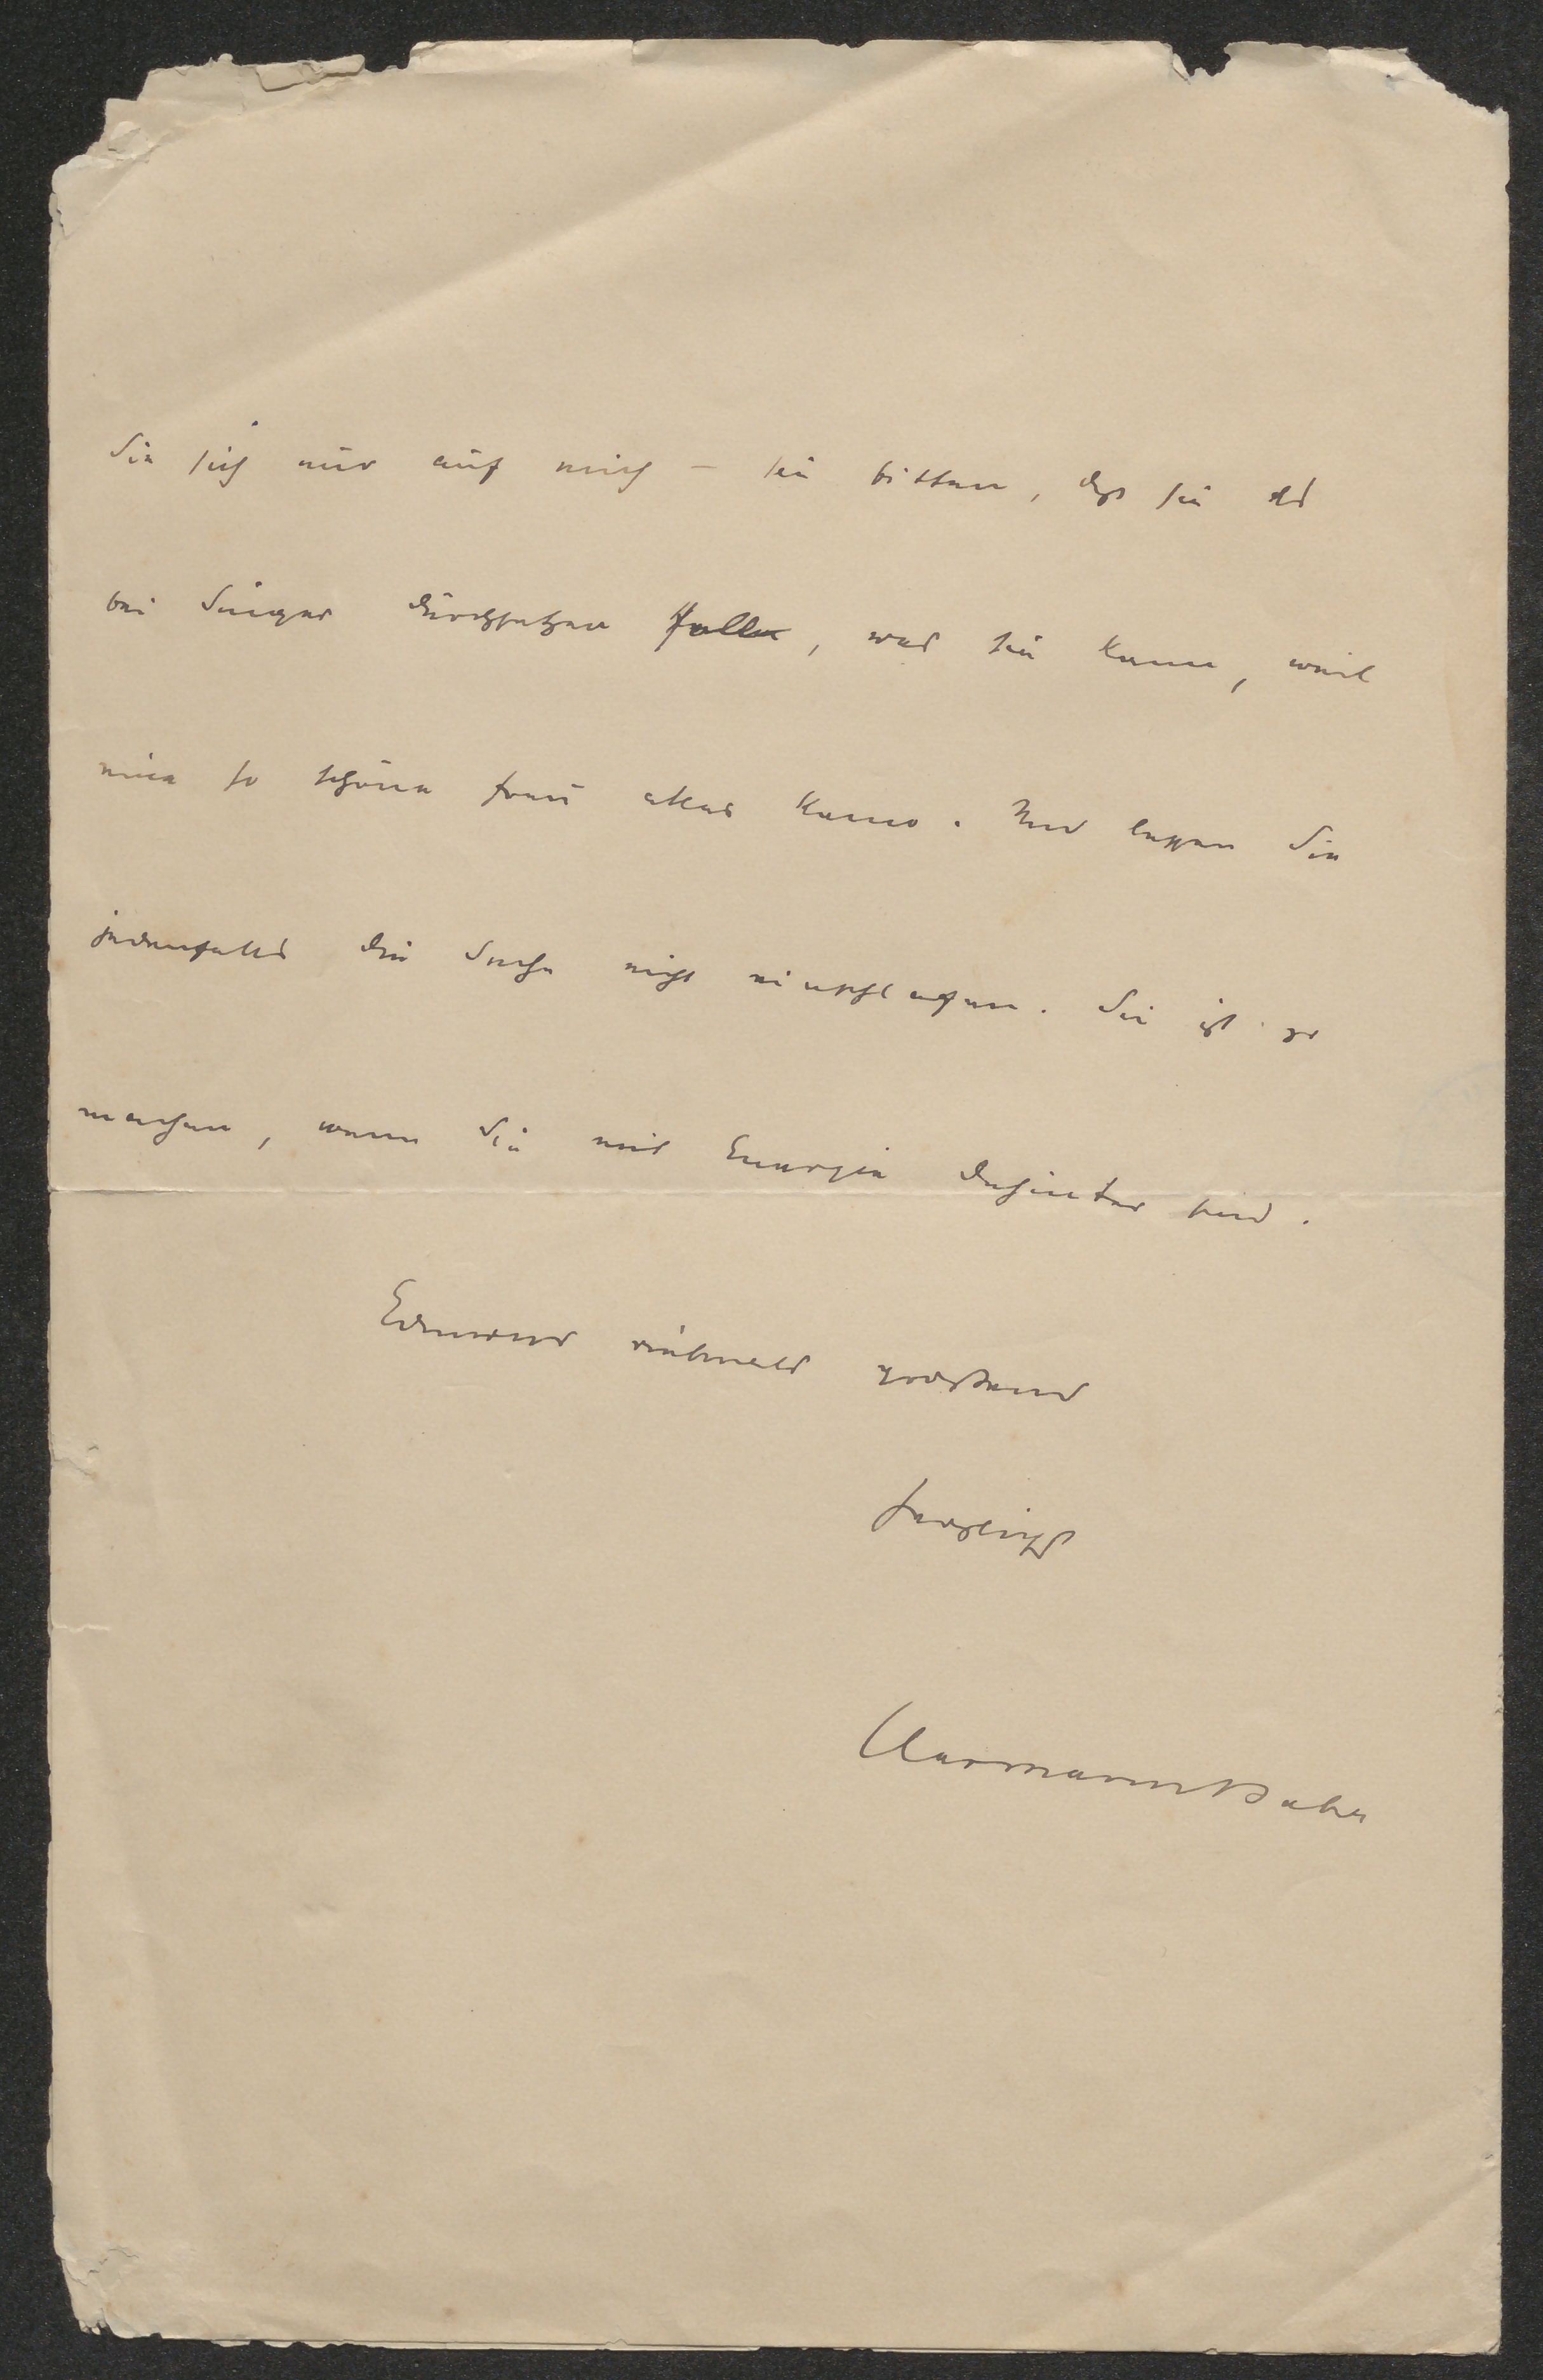 Sie sich nur auf mich – sie bitten, daß sie es
bei Singer durchsetzen soll, was sie kann, weil
eine so schöne Frau alles kann. Und lassen Sie
jedenfalls die Sache nicht einschlafen. Sie ist zu
machen, wenn Sie mit Energie dahinter sind.
Edmund vielmals grüßend
herzlichst
HermannBahr